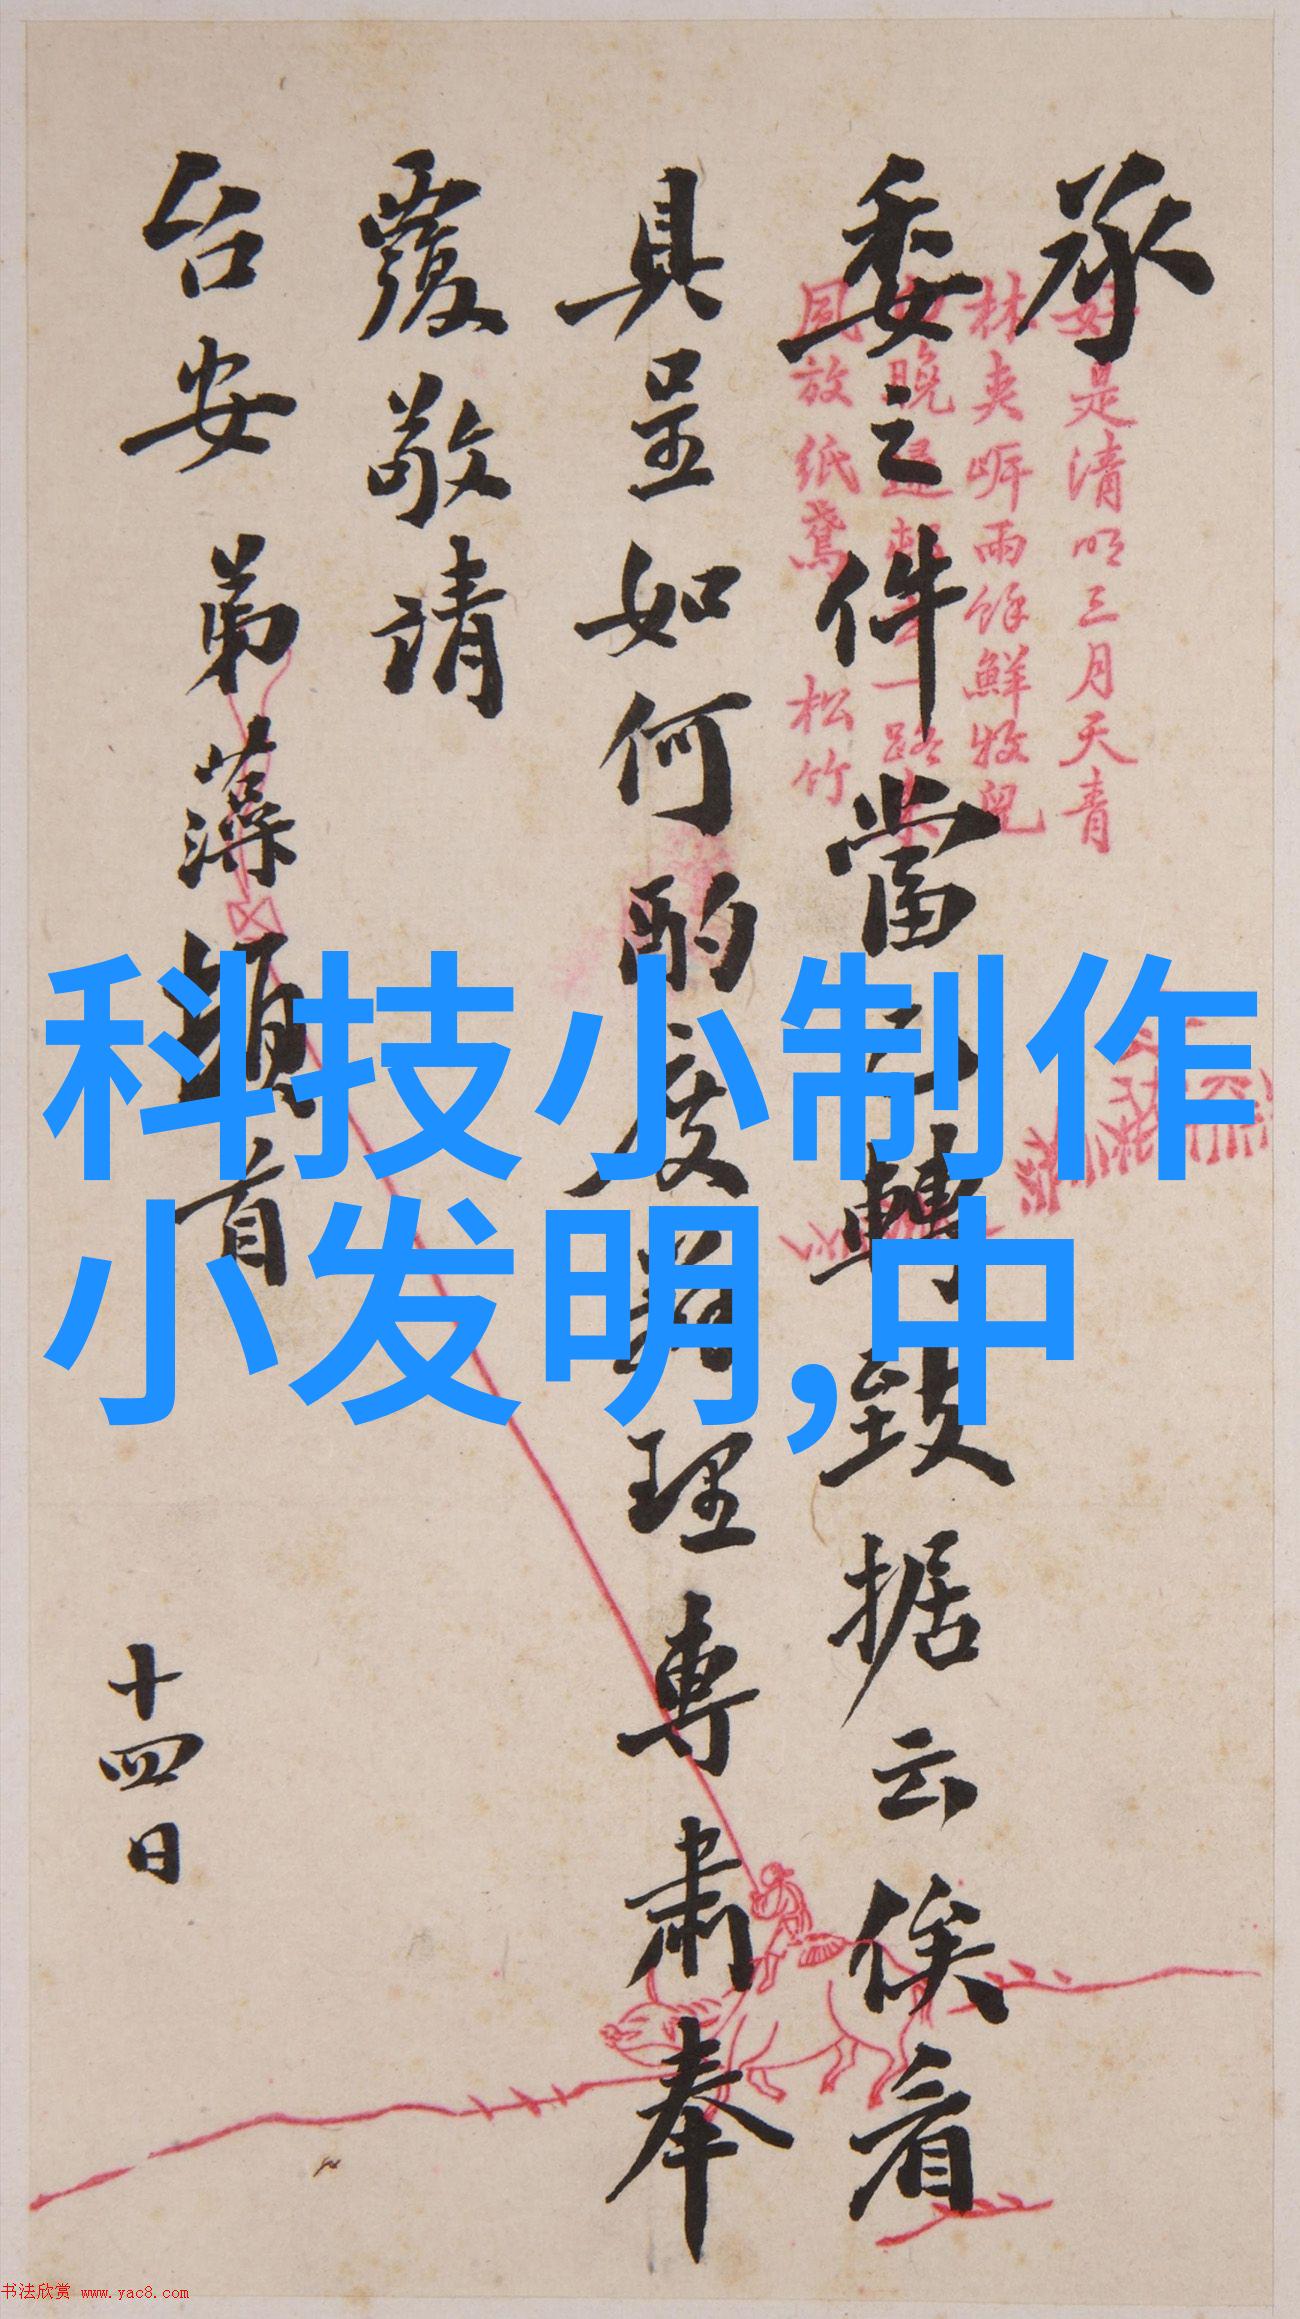 承
委之件當已轉致据云俟看
具呈如何酌度辦理專肅奉
覆敬請
台安 弟藻頓首
十四日
好是清明三月天青
林夹㟁雨馀鮮牧兒
晚歸
同放紙鳶 松竹
科技小制作
小发明,中
书法欣赏 www.yac8.com